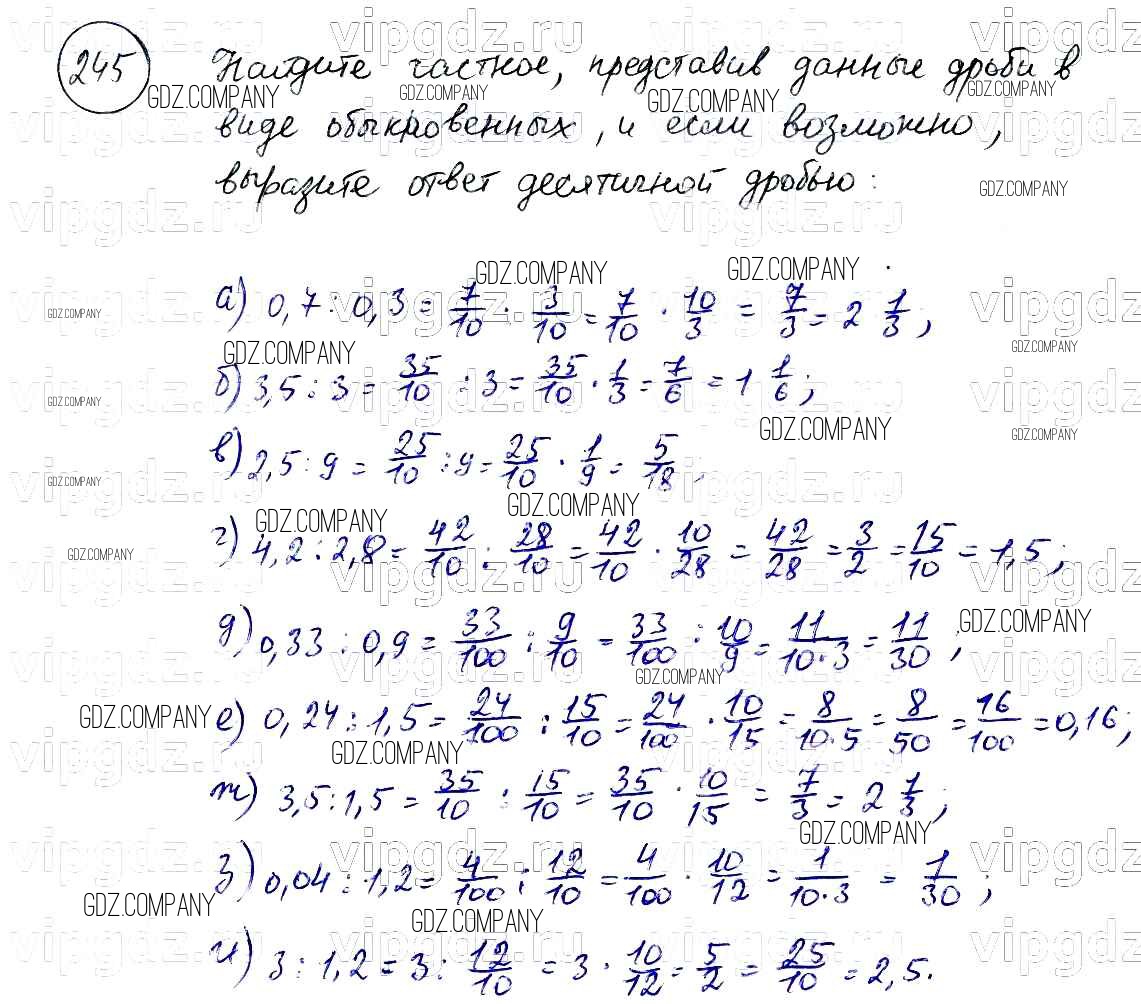 245 Найдите частное, представив данные дроби в
виде обыкновенных, и если возможно,
выразите ответ десятичной дробью:
а) 0,7 : 0,3 = 7/10 : 3/10 = 7/10 · 10/3 = 7/3 = 2 1/3;
б) 3,5 : 3 = 35/10 : 3 = 35/10 · 1/3 = 7/6 = 1 1/6;
в) 2,5 : 9 = 25/10 : 9 = 25/10 · 1/9 = 5/18.
г) 4,2 : 2,8 = 42/10 : 28/10 = 42/10 · 10/28 = 42/28 = 3/2 = 15/10 = 1,5;
д) 0,33 : 0,9 = 33/100 : 9/10 = 33/100 : 10/9 = 11/10·3 = 11/30;
е) 0,24 : 1,5 = 24/100 : 15/10 = 24/100 · 10/15 = 8/10·5 = 8/50 = 16/100 = 0,16;
ж) 3,5 : 1,5 = 35/10 : 15/10 = 35/10 · 10/15 = 7/3 = 2 1/3;
з) 0,04 : 1,2 = 4/100 : 12/10 = 4/100 · 10/12 = 1/10·3 = 1/30;
и) 3 : 1,2 = 3 : 12/10 = 3 · 10/12 = 5/2 = 25/10 = 2,5.
vipgdz.ru
GDZ.COMPANY